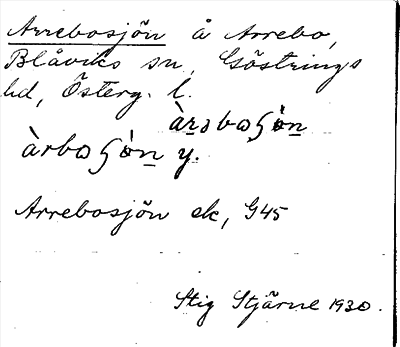 Arrebosjön å Arrebo,
Blåviks sn, Göstrings
hd, Österg. l.
àr̲ɔbɷʃȯ̀n̲
àrbɷʃȯ̀n̲ y.
Arrebosjön ek, G45
Stig Stjärne 1930.